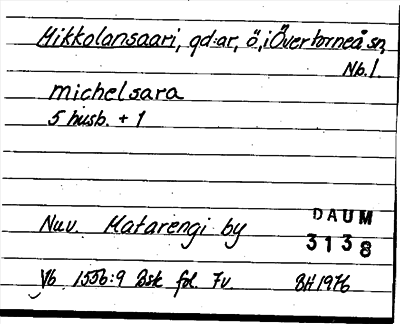 Mikkolansaari, gd:ar, ö, i Övertorneå sn,
Nb.l.
michelsara
5 husb. + 1
Nuv. Matarengi by
DAUM
3138
Yb 1556:9 Bsk fol. 7v
BH 1976